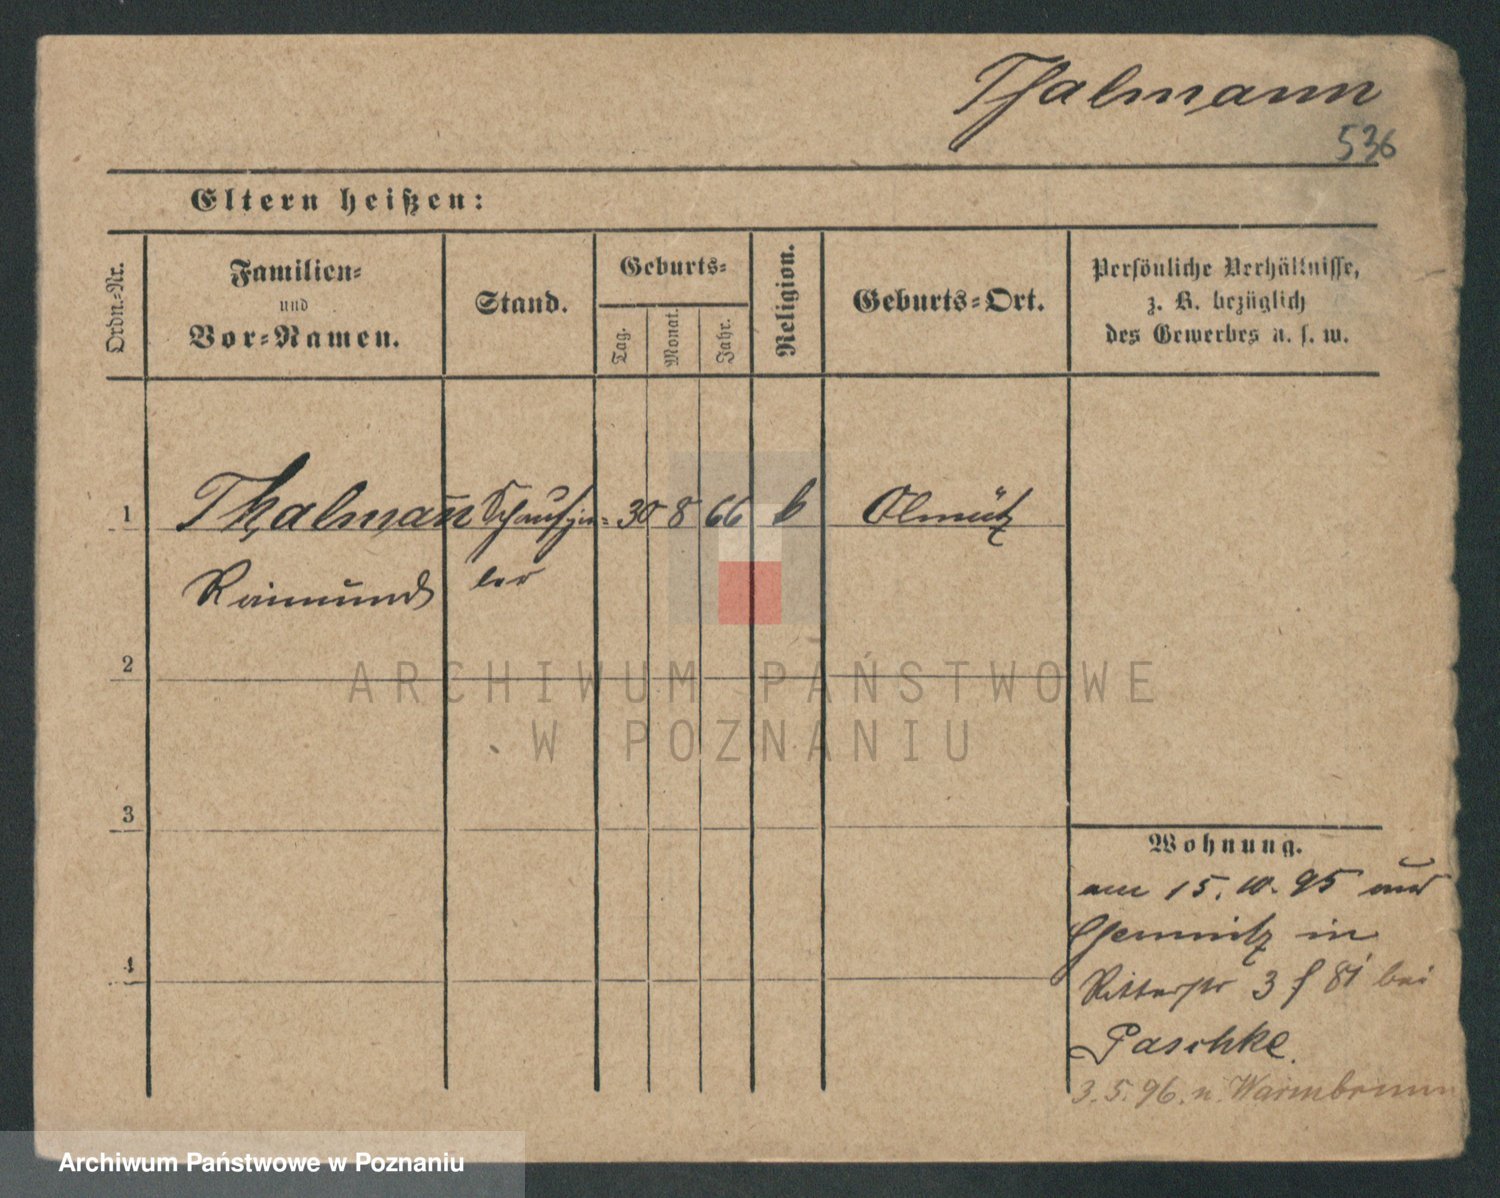 Thalmann
536
Eltern heißen:
Ordn.-Nr.
Familien-
und
Vor-Namen.
Stand.
Geburts-
Tag.
Monat.
Jahr.
Religion.
Geburts-Ort.
Persönliche Verhältnisse,
z. B. bezüglich
des Gewerbes u. s. w.
1 Thalmañ Schauspie- 30 8 66 k Olmütz
Raimund ler
2
ARCHIWUM PAŃSTWOWE
W POZNANIU
3
Wohnung.
am 15.10.95 aus
Chemnitz in
4
Ritterstr 3 bei
Paschke.
3.5.96. n. Warmbrunn
Archiwum Państwowe w Poznaniu